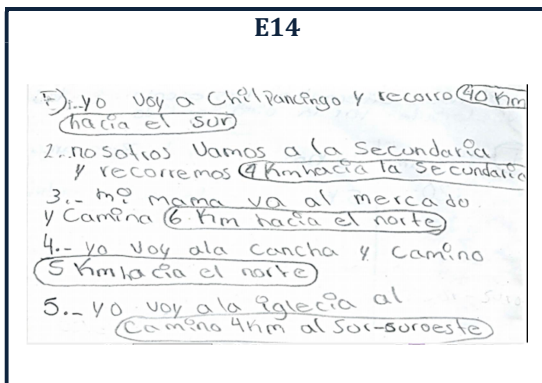 E14
F)1.- yo voy a Chilpancingo y recorro 40 Km
hacia el sur
2.. nosotros Vamos a la Secundaria
y recorremos 4 Km hacia la Secundaria
3.- mi mama va al mercado
y Camina 6 Km hacia el norte
4.- yo voy ala cancha y camino
5 Km hacia el norte
5.- yo voy ala iglecia al
Camino 4 Km al Sur-suroeste